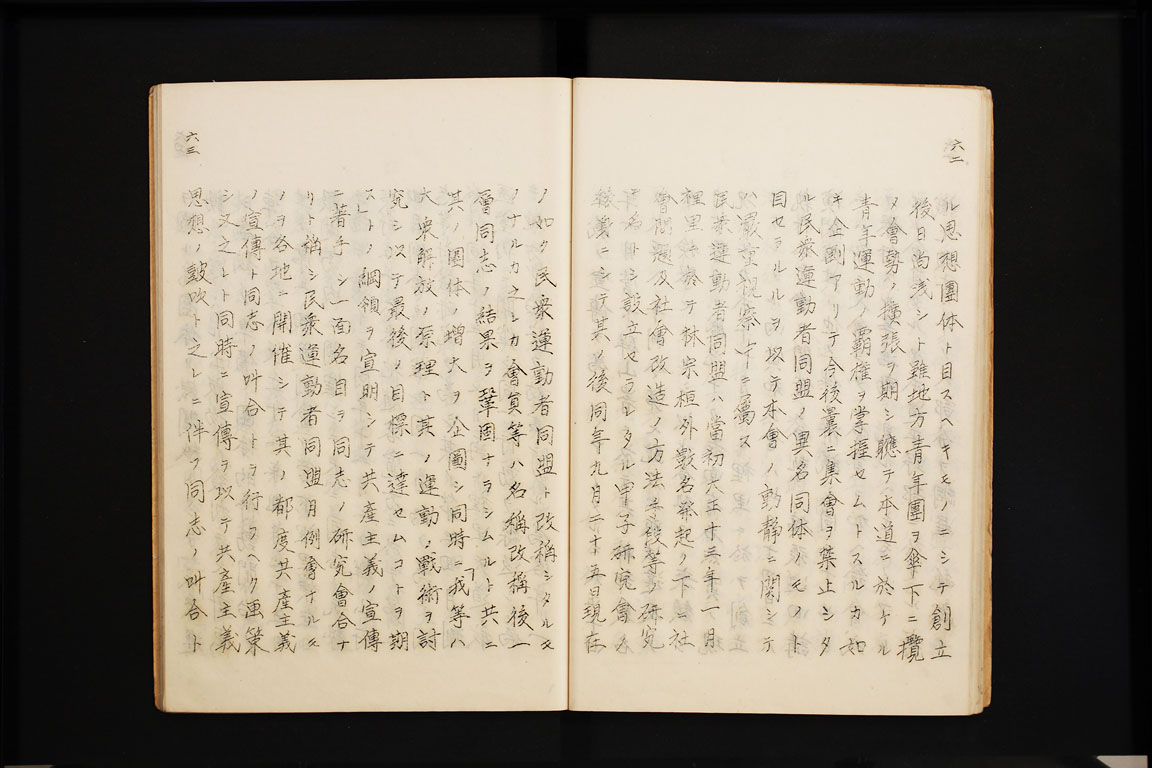 六二
ル思想團体ト目スヘキモノニシテ創立
後日尚浅シト雖地方青年團ヲ傘下ニ攬
メ會勢ノ擴張ヲ期シ軈テ本道ニ於ケル
青年運動ノ覇權ヲ掌握セムトスルカ如
キ企劃アリテ今後曩ニ集會ヲ禁止シタ
ル民衆運動者同盟ノ異名同体ノモノト
目セラルルヲ以テ本會ノ動静ニ関シテ
ハ嚴重視察中ニ屬ス
民衆運動者同盟ハ當初大正十三年一月
社里ニ於テ林宗桓外数名発起ノ下ニ社
會問題及社會改造ノ方法手段等ノ研究
ヲ名トシ設立セラレタル甲子研究會ノ
後身ニシテ其ノ後同年九月二十五日現在
六三
ノ如ク民衆運動者同盟ト改稱シタルモ
ノナルカ之シカ會員等ハ名稱改稱後一
層同志ノ結果ヲ鞏固ナラシムルト共ニ
其ノ團体ノ増大ヲ企圖シ同時ニ「我等ハ
大衆解放ノ原理ト其ノ運動ノ戰術ヲ討
究シ以テ最後ノ目標ニ達セムコトヲ期
ス」トノ綱領ヲ宣明シテ共産主義ノ宣傳
ニ著手シ一面名目ヲ同志ノ研究會合ナ
リト稱シ民衆運動者同盟月例會ナルモ
ノヲ各地ニ開催シテ其ノ都度共産主義
ノ宣傳ト同志ノ叫合トヲ行フヘク画策
シ又之レト同時ニ宣傳ヲ以テ共産主義
思想ノ鼓吹ト之レニ伴フ同志ノ叫合ト